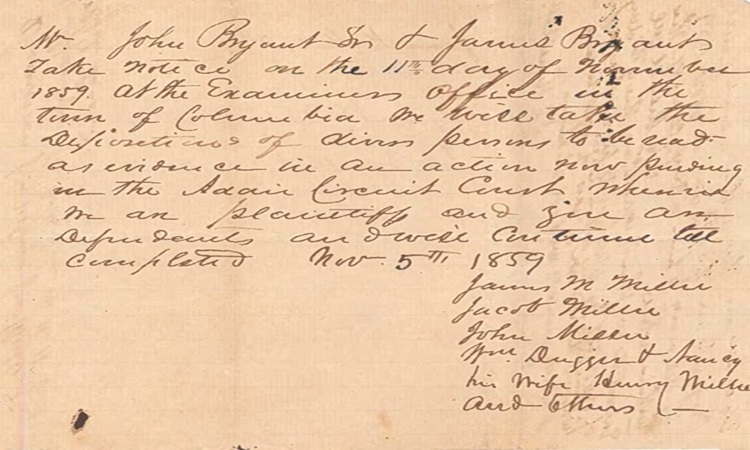 Mr. John Bryant Sr & James Bryant
Take Notice on the 11th day of November
1859. At the Examiners Office in the
town of Columbia we will take the
Depositions of divers persons to be read
as evidence in an action now pending
in the Adair Circuit Court wherein
we are plaintiffs and you are
Defendants and will continue till
completed Nov. 5th 1859
James M Miller
Jacob Miller
John Miller
Wm Dugger & Nancy
his wife Henry Miller
and others